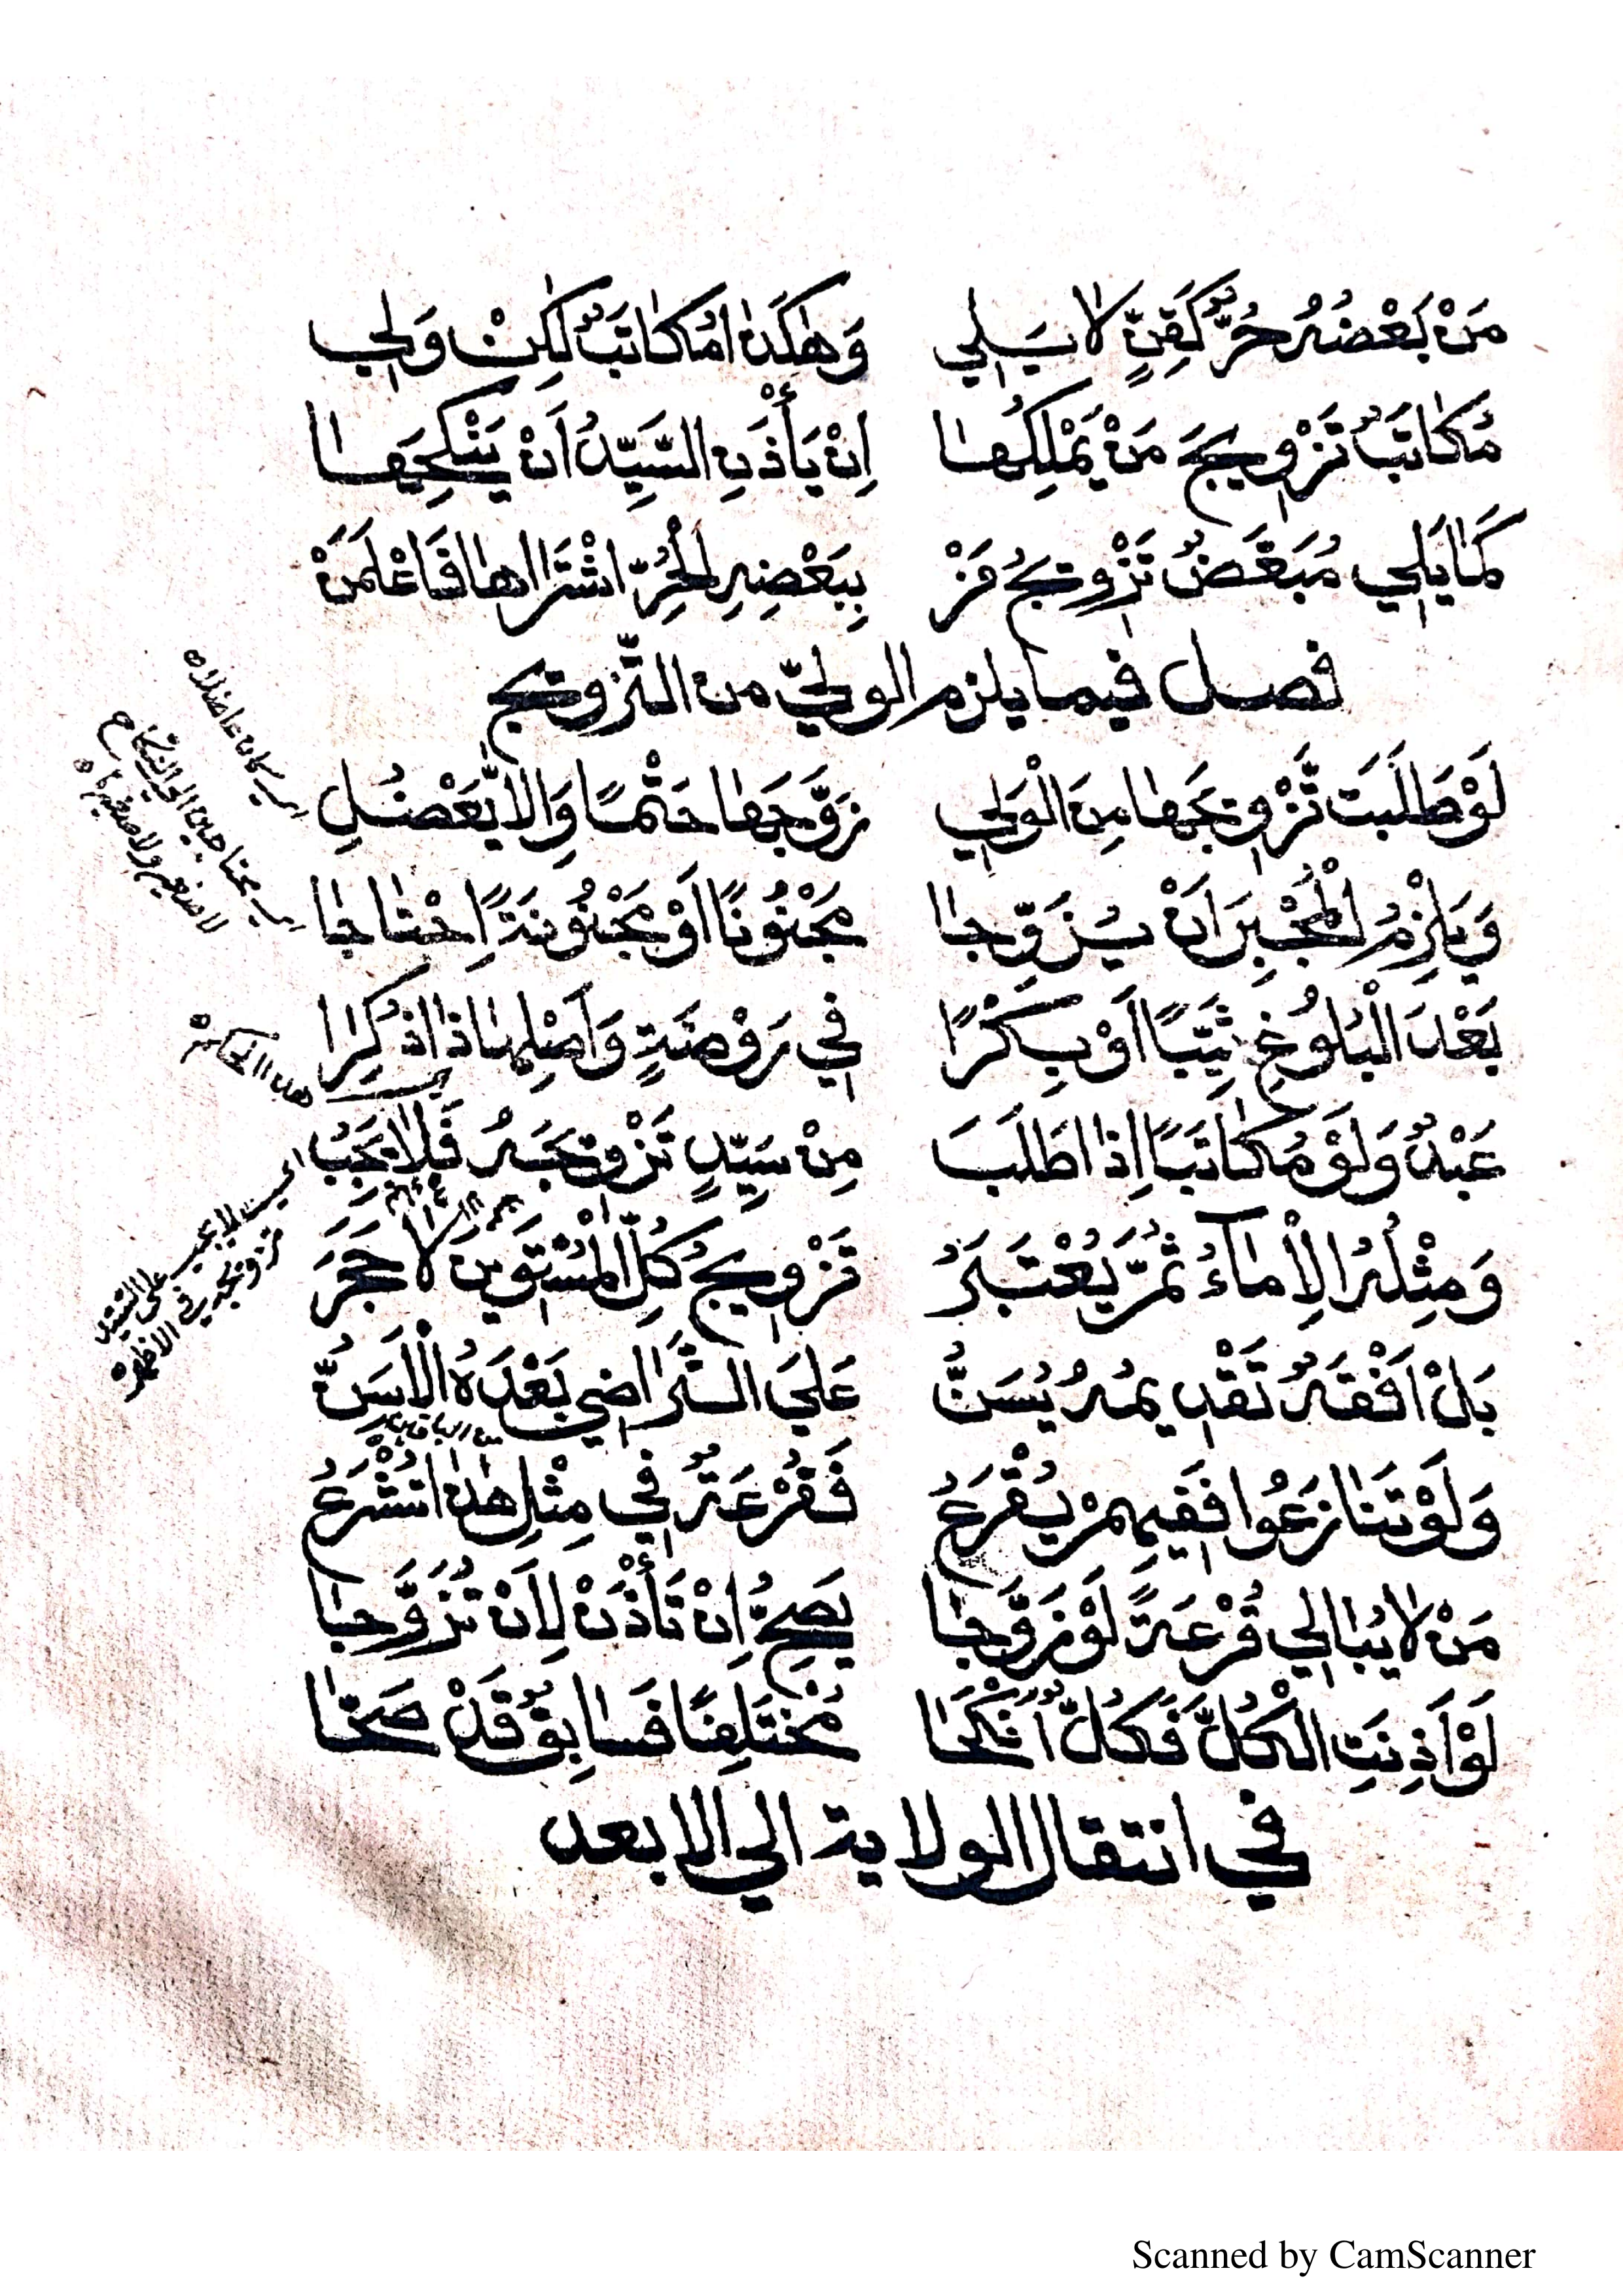 مَنْ بَعْضُهُ حُرٌّ كَقِنٍّ لَا يَلِي وَهٰكَذَا مُكَاتَبٌ لٰكِنْ وَلِي
مُكَاتَبٌ تَزْوِيجَ مَنْ يَمْلِكُهَا اِنْ يَأْذَنِ السَّيِّدُ اَنْ يَنْكِحَهَا
كَمَا يَلِي مُبَعَّضٌ تَزْوِيجَ مَنْ بِبَعْضِهِ الْحُرِّ اشْتَرَاهَا فَاعْلَمَنْ
فصل فيما يلزم الوليّ من التّزويج
لَوْ طَلَبَتْ تَزْوِيجَهَا مِنَ الْوَلِي زَوَّجَهَا حَتْمًا وَاِلَّا يَعْضُلِ
وَيَلْزِمُ الْمُجْبِرَ اَنْ يُزَوِّجَا مَجْنُونًا اَوْ مَجْنُونَةً اِحْتَاجَا
بَعْدَ الْبُلُوغِ ثَيِّبًا اَوْ بِكْرًا فِي رَوْضَةٍ وَاَصْلِهَا ذَا ذُكِرَا
عَبْدٌ وَلَوْ مُكَاتَبًا اِذَا طَلَبَ مِنْ سَيِّدٍ تَزْوِيجَهُ فَلَا يَجِبُ
وَمِثْلُهُ الْاِمَاءُ ثُمَّ يُعْتَبَرُ تَزْوِيجُ كُلِّ الْمُسْتَوِينَ لَا حَجَرَ
بَلْ اَفْقَهٌ تَقْدِيمُهُ يُسَنُّ عَلَى التَّرَاضِي بَعْدَهُ الْاَسَنُّ
وَلَوْ تَنَازَعُوا فَفِيهِمْ يُقْرَعُ فَقُرْعَةٌ فِي مِثْلِ هٰذَا تُشْرَعُ
مَنْ لَا يُبَالِي قُرْعَةً لَوْ زَوَّجَا يَصِحُّ اِنْ تَأْذَنْ لِاَنْ تُزَوَّجَا
لَوْ اَذِنَتْ الْكُلَّ فَكُلٌّ اَنْكَحَا مُخْتَلِفًا فَسَابِقٌ قَدْ صَحَّا
في انتقال الولاية الي الابعد
اي كان عاضلا
اي يحتاجون الى النكاح
لا صغير ولا صغيرة
اي لا يجب على السيد
تزويجه في الاظهر
Scanned by CamScanner